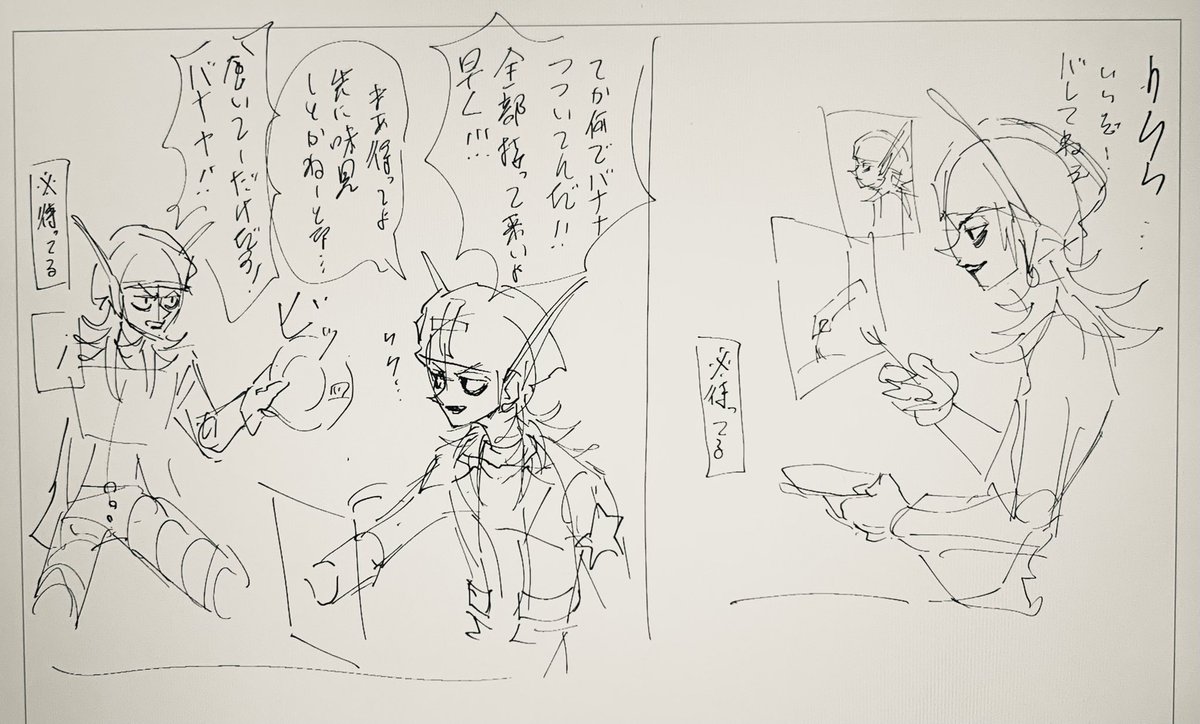 バレてねえ
※待ってる
てか何でバナナ
つついてんだ!!
全部持って来いよ
早く!!!
まあ待ってよ
先に味見
しとかねーと
食いてーだけだろ!
バナナ!!
ビッ
皿
※待ってる